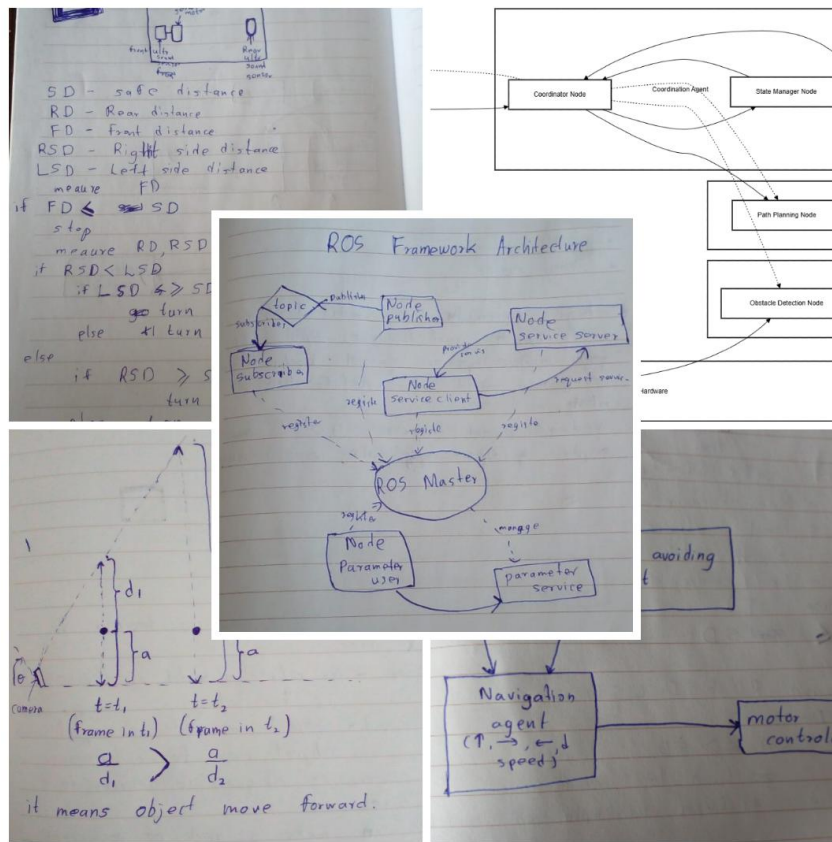 front ultra
sound
sensor
motor
Rear
ultra
sound
sensor
SD - safe distance
RD - Rear distance
FD - front distance
RSD - Right side distance
LSD - Left side distance
meaure FD
if FD ≤ SD
stop
meaure RD, RSD
if RSD < LSD
if LSD ≥ SD
turn
else turn
else
if RSD ≥ S
turn
Coordinator Node
Coordination Agent
State Manager Node
Path Planning Node
Obstacle Detection Node
Hardware
ROS Framework Architecture
topic
publish
Node
publisher
subscribes
Node
subscriber
Node
service server
provide
service
Node
service client
request service
register
register
register
register
ROS Master
register
manage
Node
Parameter
user
parameter
service
d₁
a
a
θ
camera
t=t₁
t=t₂
(frame in t₁) (frame in t₂)
a/d₁ > a/d₂
it means object move forward.
avoiding
t
Navigation
agent
(↑, →, ←, d
speed)
motor
control